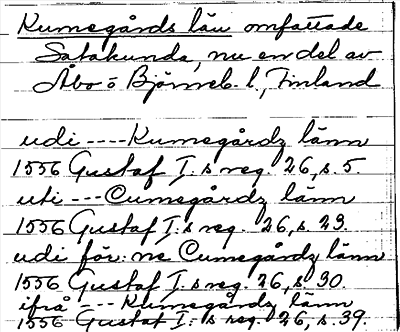 Kumegårds län omfattade
Satakunda, nu en del av
Åbo o Björneb. l., Finland
udi ---- Kumegårdz länn
1556 Gustaf I:s reg. 26, s. 5.
uti --- Cumegårdz länn
1556 Gustaf I:s reg. 26, s. 23.
udi för:ne Cumegårdz länn
1556 Gustaf I:s reg. 26, s. 30.
ifrå --- Kumegårdz länn
1556 Gustaf I:s reg. 26, s. 39.